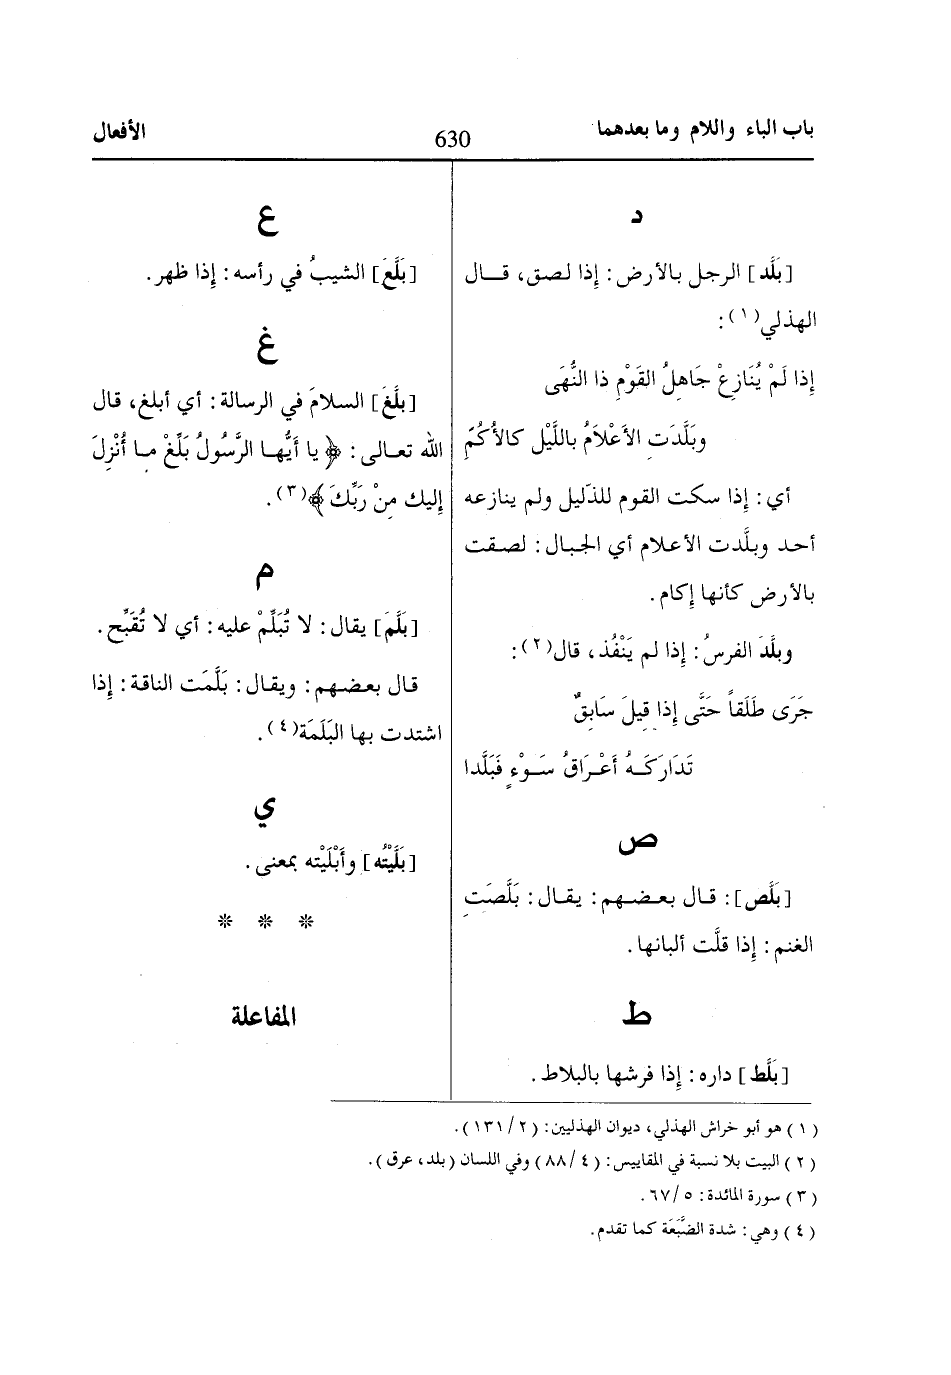 باب الباء واللام وما بعدهما
630
الأفعال
د
[بَلَّد] الرجل بالأرض: إذا لصق، قـال
الهذلي(١):
إذا لَمْ يُنَازِعْ جَاهِلُ القَوْمِ ذا النُّهَى
وبَلَّدَتِ الأعْلاَمُ باللَّيْلِ كالأُكُمِّ
أي: إذا سكت القوم للدّليل ولم ينازعه
أحد وبلَّدت الأعلام أي الجبال: لصقت
بالأرض كأنها إكام.
وبلَّدَ الفرسُ: إذا لم يَنْفُذ، قال(٢):
جَرَى طَلَقاً حَتَّى إذا قِيلَ سَابِقٌ
تَدَارَكَـهُ أعْـرَاقُ سَـوْءٍ فَبَلَّدا
ص
[بَلَّص]: قـال بعـضـهم: يقـال: بَلَّصَتِ
الغنم: إذا قلَّت ألبانها.
ط
[بَلَّط] داره: إذا فرشها بالبلاط.
ع
[بَلَّعَ] الشيبُ في رأسه: إذا ظهر.
غ
[بلَّغ] السلامَ في الرسالة: أي أبلغ، قال
الله تعـالى: ﴿يا أيُّهـا الرَّسُولُ بَلِّغْ مـا أُنْزِلَ
إليك مِنْ رَبِّكَ﴾(٣).
م
[بَلَّمَ] يقال: لا تُبَلِّمْ عليه: أي لا تُقَبِّح.
قال بعضهم: ويقال: بَلَّمَت الناقة: إذا
اشتدت بها البَلَمَة(٤).
ي
[بَلَّيْتُه] وأبْلَيْته بمعنى.
* * *
المفاعلة
(١) هو أبو خراش الهذلي، ديوان الهذليين: (٢/١٣١).
(٢) البيت بلا نسبة في المقاييس: (٤/٨٨) وفي اللسان (بلد، عرق).
(٣) سورة المائدة: ٥/٦٧.
(٤) وهي: شدة الضَّبَعَة كما تقدم.